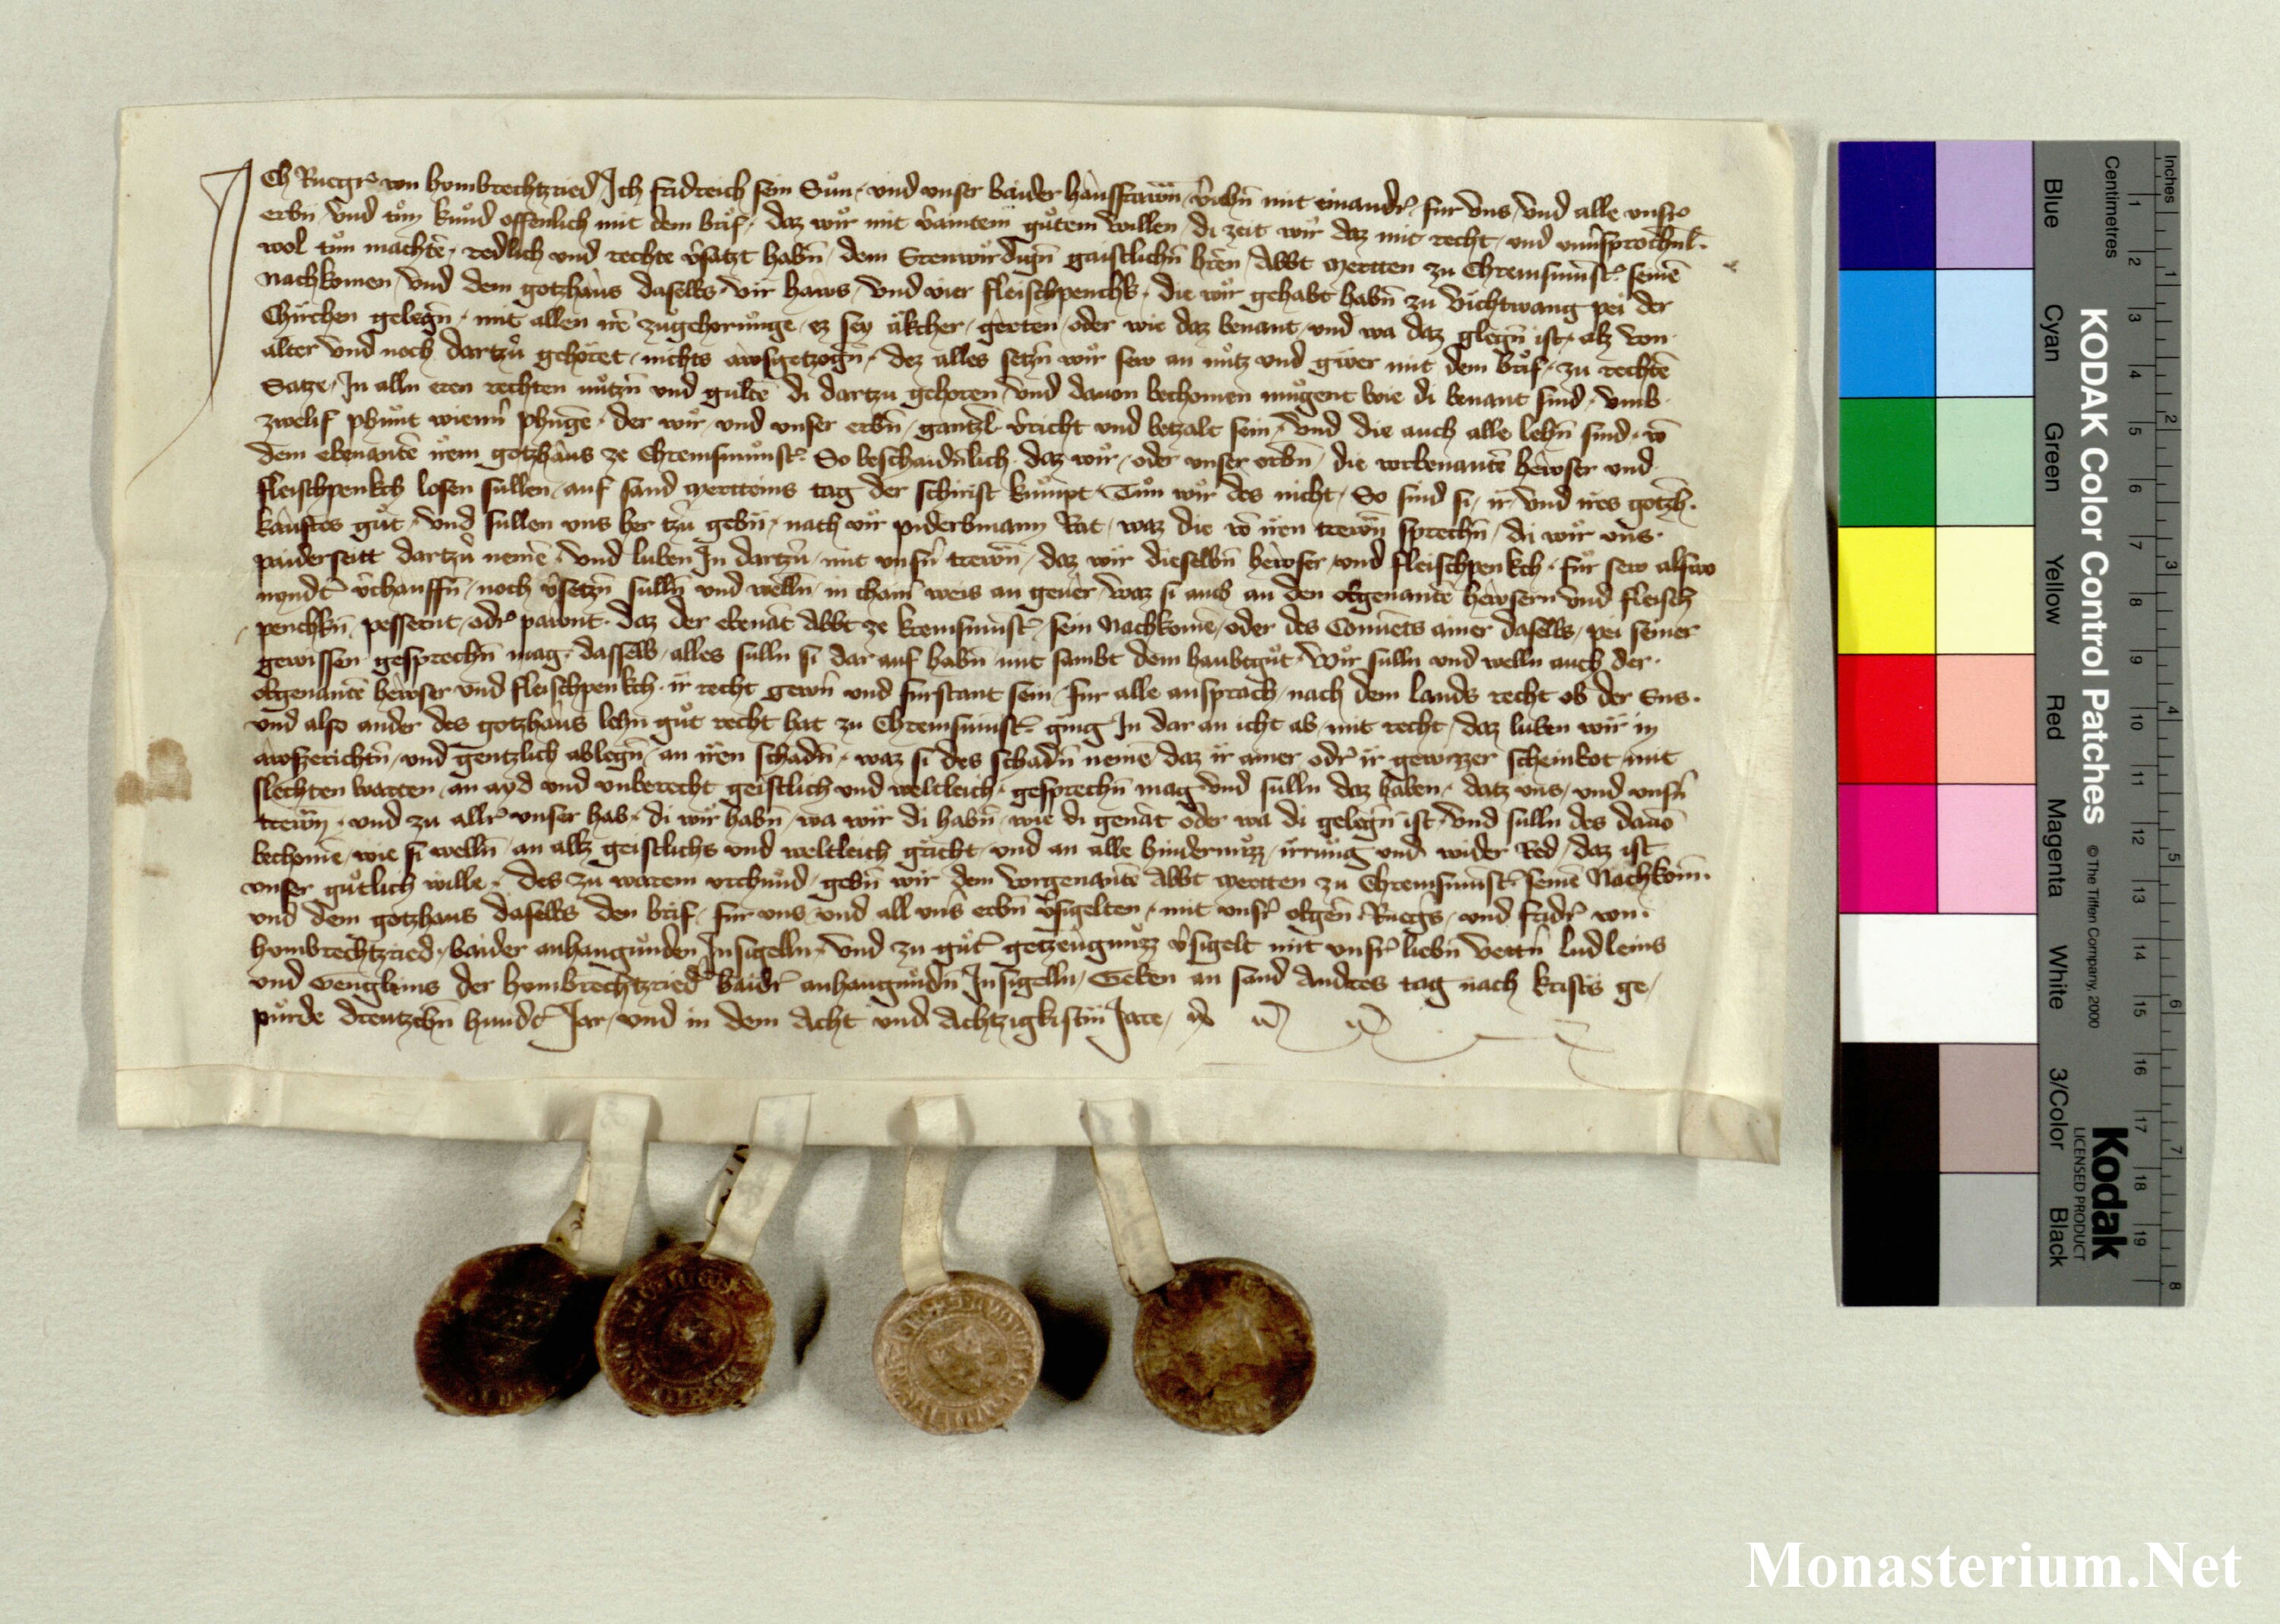 Ich Rueger von hombrechtzried Ich fridreich sein Sůn und unser baider hausfrawn v̓iehn̄ mit einander fur uns und alle unser
erbn̄ und tůn kůnd offenlich mit dem brif daz wir mit v̓aintem gůtem willen di zeit wir daz mit recht und
wol tůn machtē redlich und rechte v̓satzt habn̄ dem Erenwirdign̄ gaistlichn̄ hrēn Abbt Mertten zu Chremsmūnst̓ seinē
Nachkomen und dem gotzhaus daselbs vir haws und vier fleischpenchk die wir gehabt habn̄ zu Vichtwang pei der
Chirchen gelegn̄ mit allen irē zůgehorůnge ez sey äkcher gerten oder wie daz benant und wa daz glegn̄ ist alz von
alter und noch dartzů gehöret nichts awsgetzogn̄ dez alles setzn̄ wir sew an nůtz und gwer mit dem brif zu rechtē
Satze In alln eren rechten nůtzn̄ und gultē di dartzu gehoren und dauon bechomen můgent wie di benant sind umb
zwelif phunt wienn̄ phnīge der wir und unser erbn̄ gantzl̄ v̓richt und betzalt sein und die auch alle lehn̄ sind vō
dem ebenantē irem gotzhaus ze Chremsmůnst̓ So beschaidnlich daz wir oder unser erbn̄ die vorbenantē hewser und
fleischpenkch losen sullen auf sand Merteins tag der schirist kůmpt Tůn wir des nicht So sind si ir und ires gotzh̄
kauftes gůt und sullen uns her tzů gebn̄ nach vir piderbmann Rat waz die vō iren trewn̄ sprechn̄ di wir uns
paiderseitt dartzů nemē und luben In dartzů mit unsn̓ trewn̄ daz wir dieselbn̄ hewser und fleischpenkch fůr sew
nyndt̓ v̓chauffn̄ noch v̓setzn̄ sulln̄ und welln̄ in chain̄ weis an geuer waz si auch an den obgenantē hewsern und fleisch
penchkn̄ pessernt oder pawnt daz der ebenāt Abbt ze kremsmūnst̓ sein Nachkomē oder des Conuēts ainer daselbs pei seiner
gewissen gesprechn̄ mag dasselb alles sulln si dar auf habn̄ mit sambt dem haubtgůt Wir sulln und welln auch der
obgenantē hewser und fleischpenkch ir recht gewn̄ und furstant sein fur alle ansprach nach dem lands recht ob der Ens
und also ander des gotzhaus lehn gůt recht hat zu Chremsmūnst̓ ging In dar an icht ab mit recht daz luben wir in
awszerichtn̄ und gentzlich ablegn̄ an iren schadn̄ waz si des schadn̄ nemē daz ir ainer oder ir gewizzer scheinbot mit
slechten warten an ayd und unberecht geistlich und weltleich gesprechn̄ mag und sulln daz haben datz uns und unsn̓
trewn̄ und zu aller unser hab di wir habn̄ wa wir di habn̄ wie di genāt oder wa di gelegn̄ ist und sulln des dauō
bechomē wie si welln̄ an allz geistlichs und weltleich gericht und an alle hindernůzz irrung und wider Red daz ist
unser gůtlich wille Des zu warem vrchund gebn̄ wir dem vorgenantē Abbt Mertten zu Chremsmūnst̓ seinē Nachkom̄
und dem gotzhaus daselbs den brif fur uns und all uns̓ erbn̄ v̓sigelten mit unsr̓ obgen̄ Ruegers und fridr̓ von
hombrechtzried baider anhangunden Insigelln und zu gůt̓ getzeugnůzz v̓sigelt mit unsr̓ liebn̄ vettn̓ ludleins
und Genglēins der hombrechtzried̓ baidr̓ anhangundn̄ Insigelln Geben an sand Andres tag nach krists ge
půrde dreutzehn̄ hundt̓ Jar und in dem Acht und Achtzigkistm̄ Jare
KODAK Color Control Patches © The Tiffen Company, 2000 Kodak LICENSED PRODUCT
Blue Cyan Green Yellow Red Magenta White 3/Color Black
Centimetres 1 2 3 4 5 6 7 8 9 10 11 12 13 14 15 16 17 18 19
Inches 1 2 3 4 5 6 7 8
Monasterium.Net